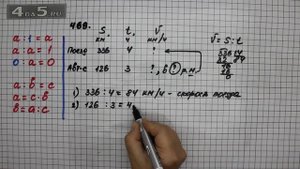 4 do 5 . RU
a : 1 = a
a : a = 1
0 : a = 0
a : b = c
a = c · b
b = a : c
468.
S, км t, ч V км/ч
Поезд 336 4 ?
Авт-с 126 3 ?, в ? р. м.
V = S : t
336 4
84
16
16
0
1) 336 : 4 = 84 км/ч - скорость поезда
2) 126 : 3 = 4